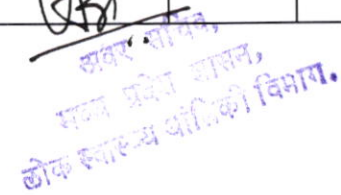 अवर सचिव,
मध्य प्रदेश शासन,
लोक स्वास्थ्य यांत्रिकी विभाग.